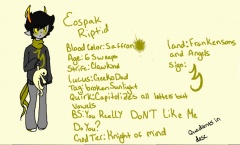 Eospak
Riptid
Blood Color: Saffron
Age: 6 Sweeps
Strife: Clawkind
Lusus: Gecko Dad
Tag: brokenSunlight
Quirk: Capitolizes all letters but
Vowels
BS: You ReaLLY DoNT LiKe Me
Do You?
God Tier: Knight of mind
Land: Frankensons
and Angels
Sign:
Quadrants in
desc